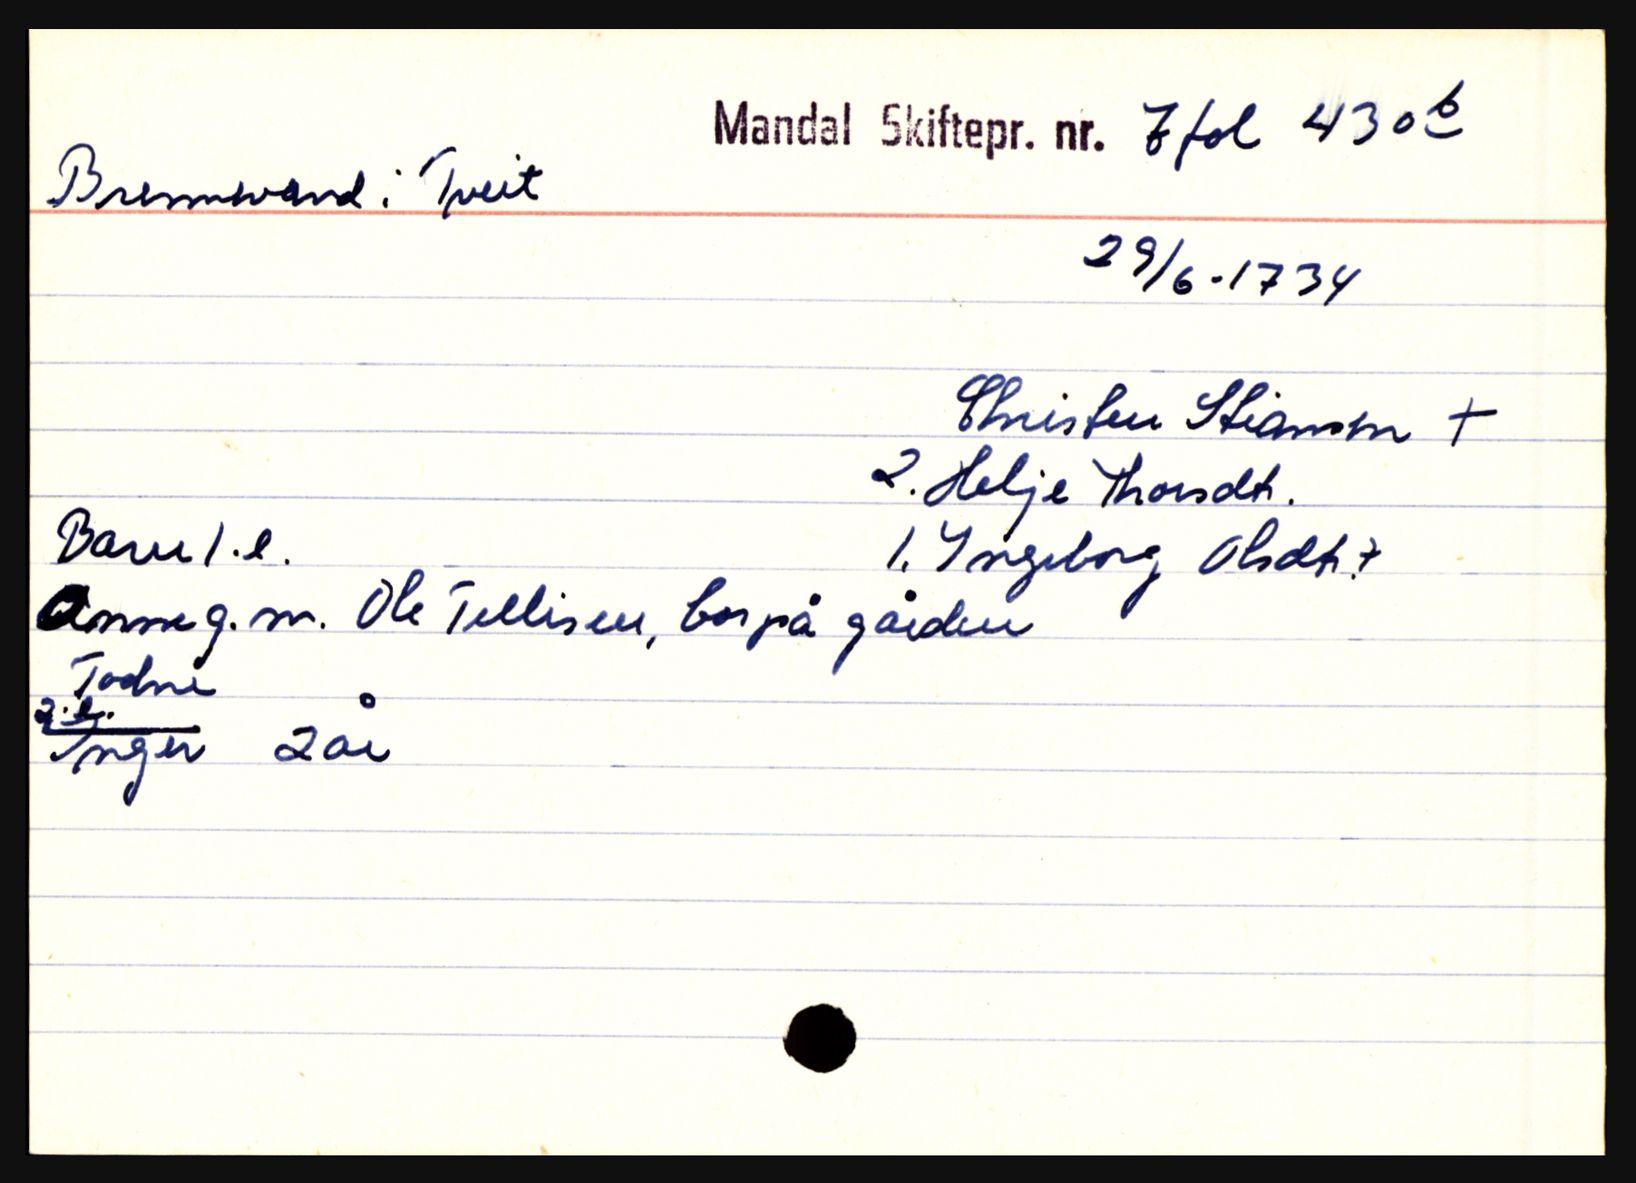 Mandal Skiftepr. nr. 7 fol 430 b
Brennevand i Tveit
29/6-1734
Christen Stiansen +
2. Helje Thorsdt.
Barn 1.e.
1. Yngeborg Olsdt. +
Anne g.m. Ole Tellisen, bor på gården
Todne
2.e.
Inger 2 år